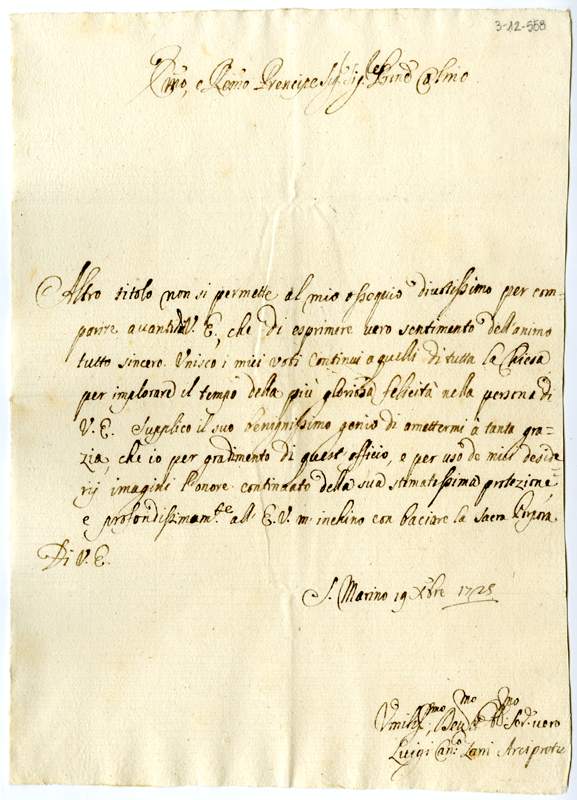 3-12-558
Emo, e Remo Principe Sig. Sig. Pron Colmo
Altro titolo non si permette al mio ossequio divotissimo per com=
parire avanti di V. E., che di esprimere vero sentimento dell'animo
tutto sincero. Unisco i miei voti continui a quelli di tutta la Chiesa
per implorare il tempo della più gloriosa felicità nella persona di
V. E. Supplico il suo benignissimo genio di amettermi à tanta gra=
zia, che io per gradimento di quest officio, e per uso de miei deside=
rij imagini l'onore continuato della sua stimatissima protezione
e profondissimam.te all' E. V. m'inchino con baciare la Sacra Porpora
Di V. E.
S. Marino 19 Xbre 1725
Umiliss.mo Devmo Obmo Ser. vero
Luigi Can.o Zani Arciprete